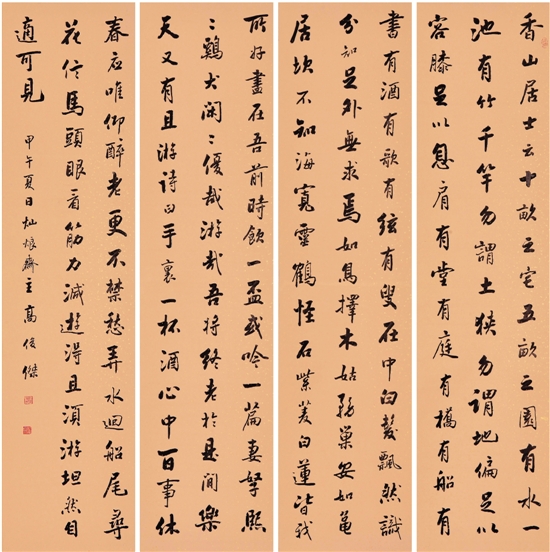 香山居士云十畝之宅五畝之園有水一
池有竹千竿勿謂土狹勿謂地偏足以
容膝足以息肩有堂有庭有橋有船有
書有酒有歌有弦有叟在中白髮飄然識
分知足外無求焉如鳥擇木姑務巢安如龜
居坎不知海寬靈鶴怪石紫菱白蓮皆我
所好盡在吾前時飲一盃或吟一篇妻孥熙
〻鷄犬閑〻優哉游哉吾將終老於其間樂
天又有且游詩曰手裏一杯酒心中百事休
春應唯仰醉老更不禁愁弄水迴船尾尋
花信馬頭眼看筋力減遊得且須游坦然自
適可見
甲午夏日齋主高俊傑